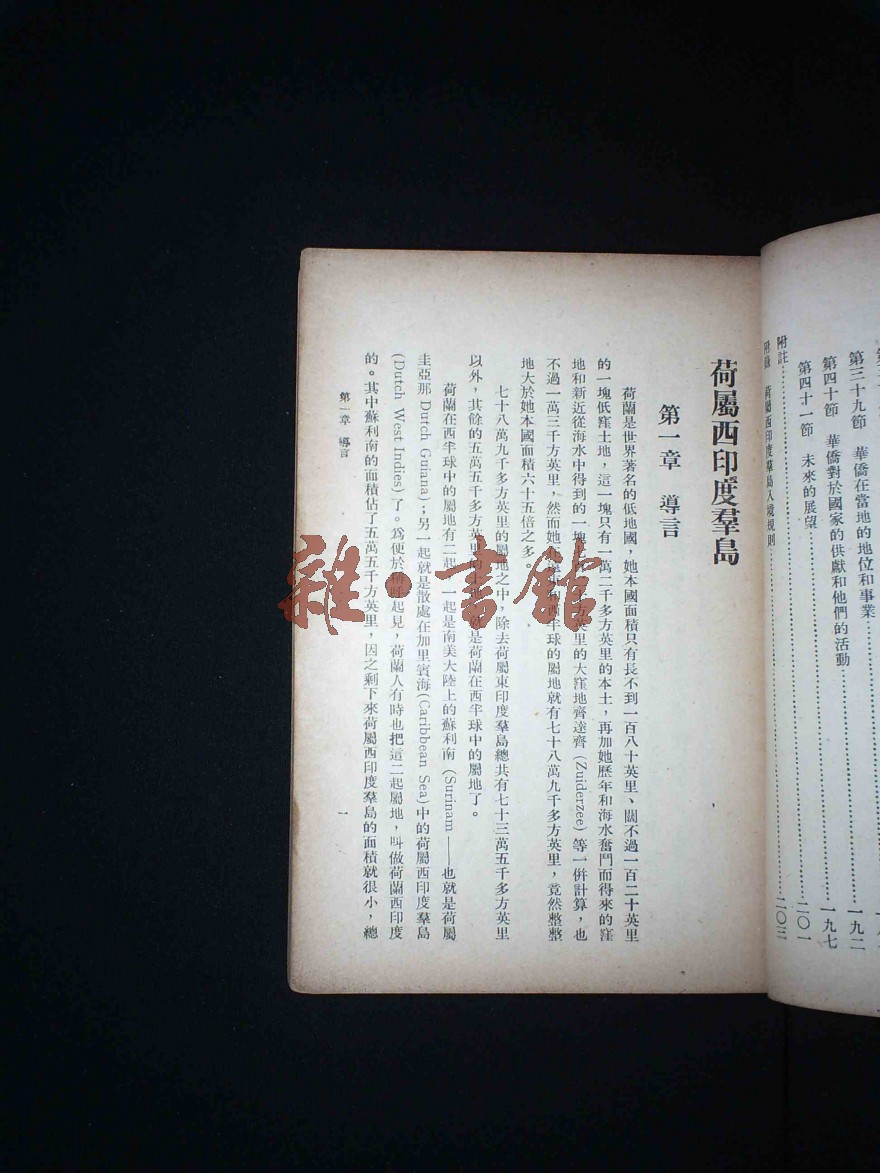 第三十九節　華僑在當地的地位和事業……………一九二
第四十節　華僑對於國家的供獻和他們的活動……………一九七
第四十一節　未來的展望……………二〇一
附註……………二〇三
附錄　荷屬西印度羣島入境規則……………
荷屬西印度羣島
第一章　導言
荷蘭是世界著名的低地國，她本國面積只有長不到一百八十英里、闊不過一百二十英里
的一塊低窪土地，這一塊只有一萬二千多方英里的本土，再加她歷年和海水奮鬥而得來的窪
地和新近從海水中得到的一塊七百多方英里的大窪地齊達齊 (Zuiderzee) 等一併計算，也
不過一萬三千方英里，然而她在東和西半球的屬地就有七十八萬九千多方英里，竟然整整
地大於她本國面積六十五倍之多。
七十八萬九千多方英里的屬地之中，除去荷屬東印度羣島總共有七十三萬五千多方英里
以外，其餘的五萬五千多方英里的　就是荷蘭在西半球中的屬地了。
荷蘭在西半球中的屬地有二起，一起是南美大陸上的蘇利南 (Surinam——也就是荷屬
圭亞那 Dutch Guiana)；另一起就是散處在加里賓海(Caribbean Sea)中的荷屬西印度羣島
(Dutch West Indies)了。爲便於稱呼起見，荷蘭人有時也把這二起屬地，叫做荷蘭西印度
的。其中蘇利南的面積佔了五萬五千方英里，因之剩下來荷屬西印度羣島的面積就很小，總
第一章　導言
一
雜·書館